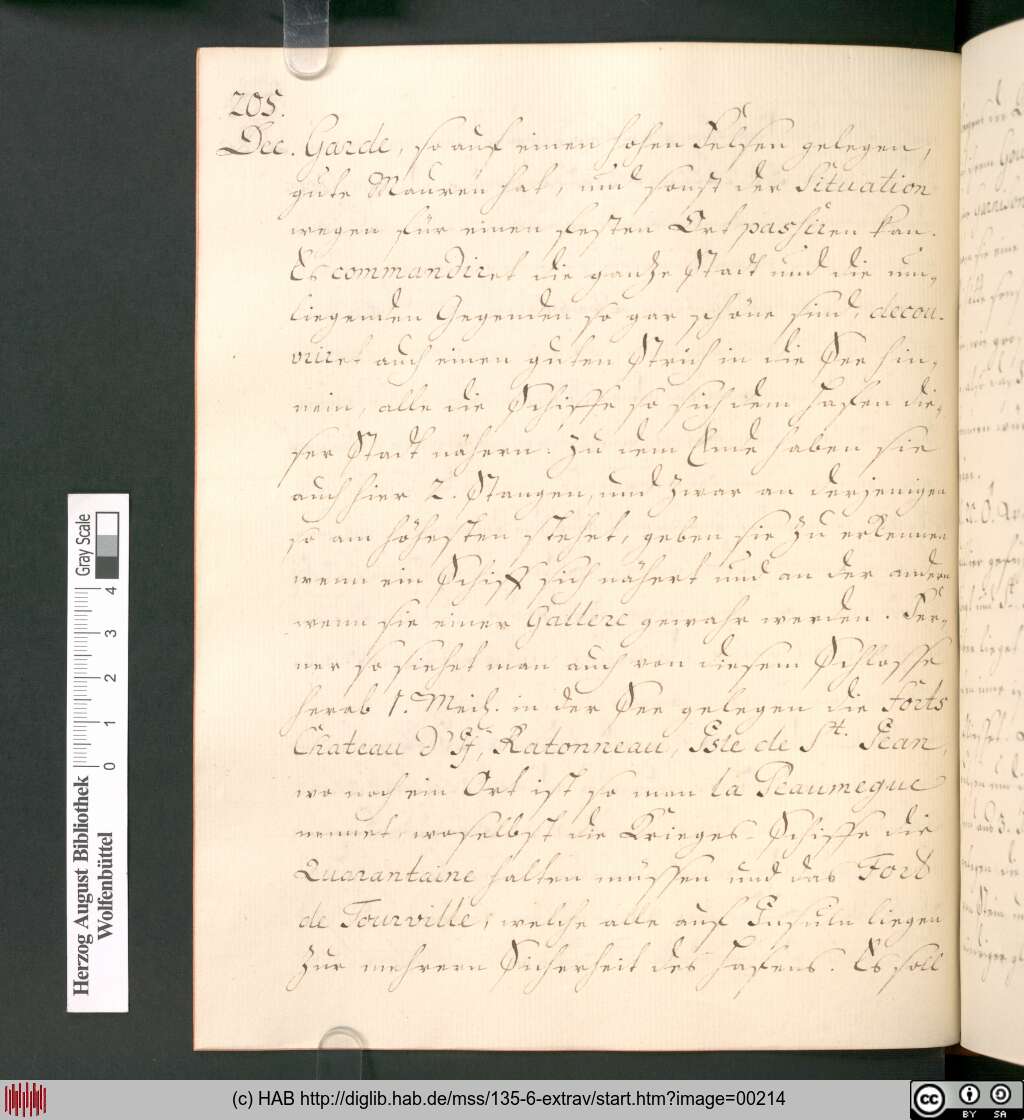 205.
Dec. Garde, so auf einen hohen Felsen gelegen,
gute Mauren hat, und sonst der Situation
wegen für einen festen Ort passiren kan.
Es commandiret die ganze Stadt und die um-
liegenden Gegenden so gar schöne sind, decou-
vriret auch einen guten Strich in die See hin-
nein, alle die Schiffe so sich dem Hafen die-
ser Stadt nähern: Zu dem Ende haben sie
auch hier 2. Stangen, und zwar an derjenigen
so am höhesten stehet, geben sie zu erkennen
wenn ein Schiff sich nähert und an der andern
wenn sie einer Gallere gewahr werden. Fer-
ner so siehet man auch von diesem Schlosse
herab 1. Meil. in der See gelegen die Forts
Chateau d'If, Ratonneau, Isle de St. Jean,
wo noch ein Ort ist so man la Peaumegue
nennet, woselbst die Krieges-Schiffe die
Quarantaine halten müssen und das Fort
de Tourville, welche alle auf Insuln liegen
zur mehrern Sicherheit des Hafens. Es soll
Gray Scale
0 1 2 3 4
Herzog August Bibliothek
Wolfenbüttel
(c) HAB http://diglib.hab.de/mss/135-6-extrav/start.htm?image=00214
cc BY SA